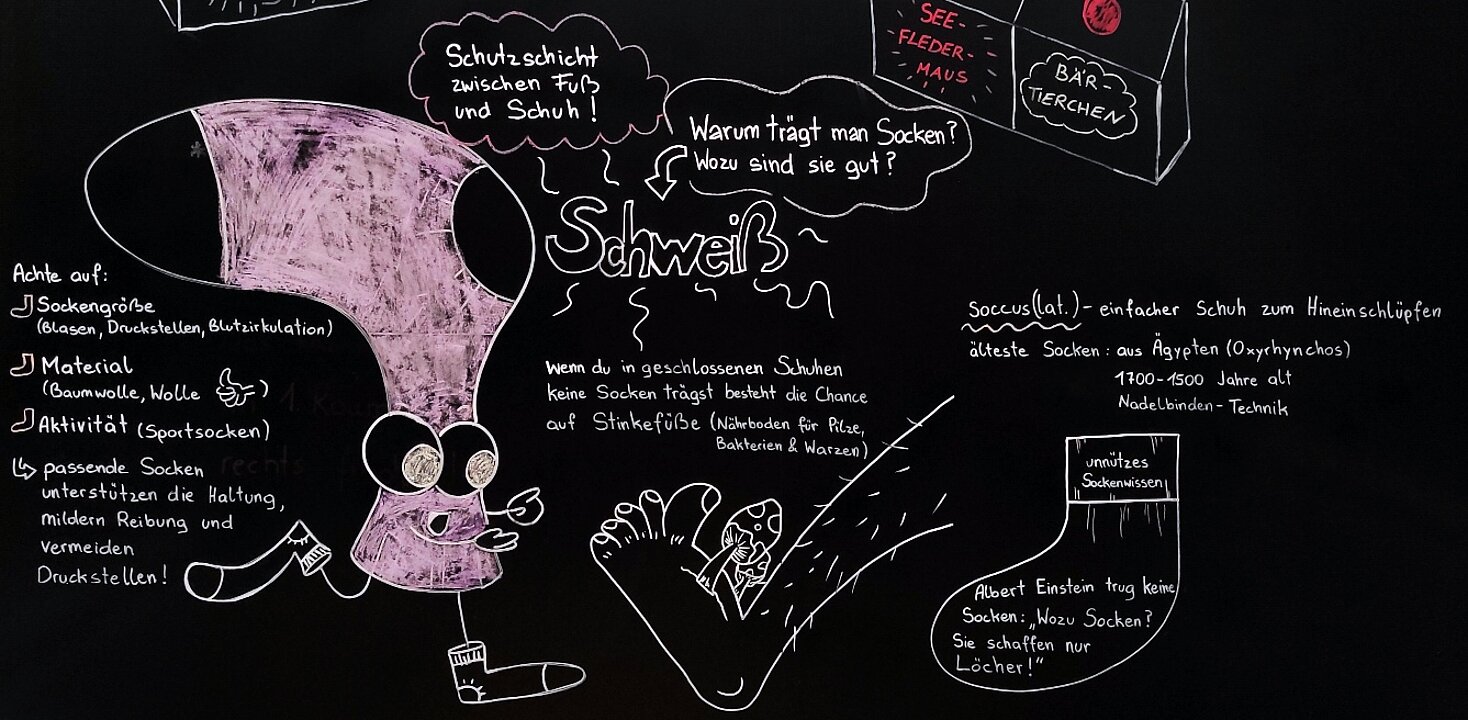 Schutzschicht
zwischen Fuß
und Schuh!
Warum trägt man Socken?
Wozu sind sie gut?
SEE-
FLEDER-
MAUS
BÄR-
TIERCHEN
Schweiß
Achte auf:
Sockengröße
(Blasen, Druckstellen, Blutzirkulation)
Material
(Baumwolle, Wolle )
Aktivität (Sportsocken)
passende Socken
unterstützen die Haltung,
mildern Reibung und
vermeiden
Druckstellen!
Wenn du in geschlossenen Schuhen
keine Socken trägst besteht die Chance
auf Stinkefüße (Nährboden für Pilze,
Bakterien & Warzen)
soccus (lat.) - einfacher Schuh zum Hineinschlüpfen
älteste Socken: aus Ägypten (Oxyrhynchos)
1700-1500 Jahre alt
Nadelbinden-Technik
unnützes
Sockenwissen
Albert Einstein trug keine
Socken: „Wozu Socken?
Sie schaffen nur
Löcher!"